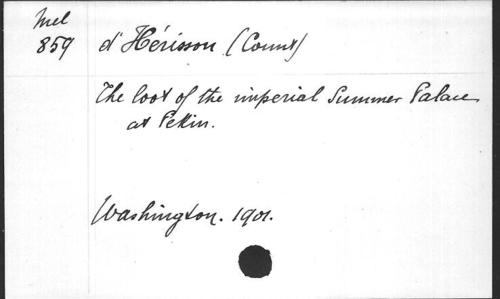 Mel
859
d'Hérisson (Count)
The loot of the imperial Summer Palace
at Pekin.
Washington. 1901.